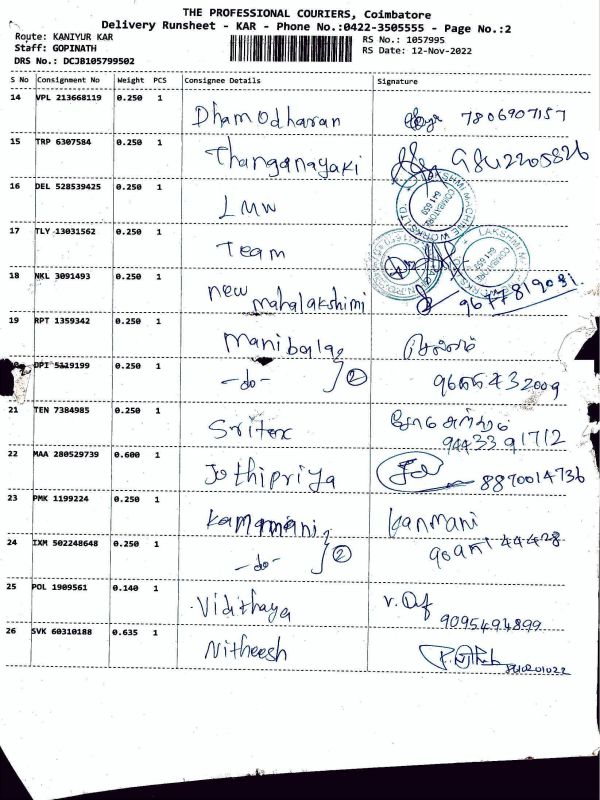 THE PROFESSIONAL COURIERS, Coimbatore
Delivery Runsheet - KAR - Phone No.:0422-3505555 - Page No.:2
Route: KANIYUR KAR
RS No.: 1057995
Staff: GOPINATH
RS Date: 12-Nov-2022
DRS No.: DCJB105799502
S No Consignment No Weight PCS Consignee Details Signature
14 VPL 213668119 0.250 1 Dhamodharan 7806907157
15 TRP 6307584 0.250 1 Thanganayaki 9842205826
16 DEL 528539425 0.250 1 LMW
17 TLY 13031562 0.250 1 Team
18 NKL 3091493 0.250 1 new mahalakshimi 9677819091
19 RPT 1359342 0.250 1 Manibala
DPI 5119199 0.250 1 -do- 2
21 TEN 7384985 0.250 1 Sritex 9443391712
22 MAA 280529739 0.600 1 Jothipriya 8870014736
23 PMK 1199224 0.250 1 Kanmani Kanmani
24 IXM 502248648 0.250 1 -do- 2
25 POL 1909561 0.140 1 Vidithaya 9095494899
26 SVK 60310188 0.635 1 Nitheesh